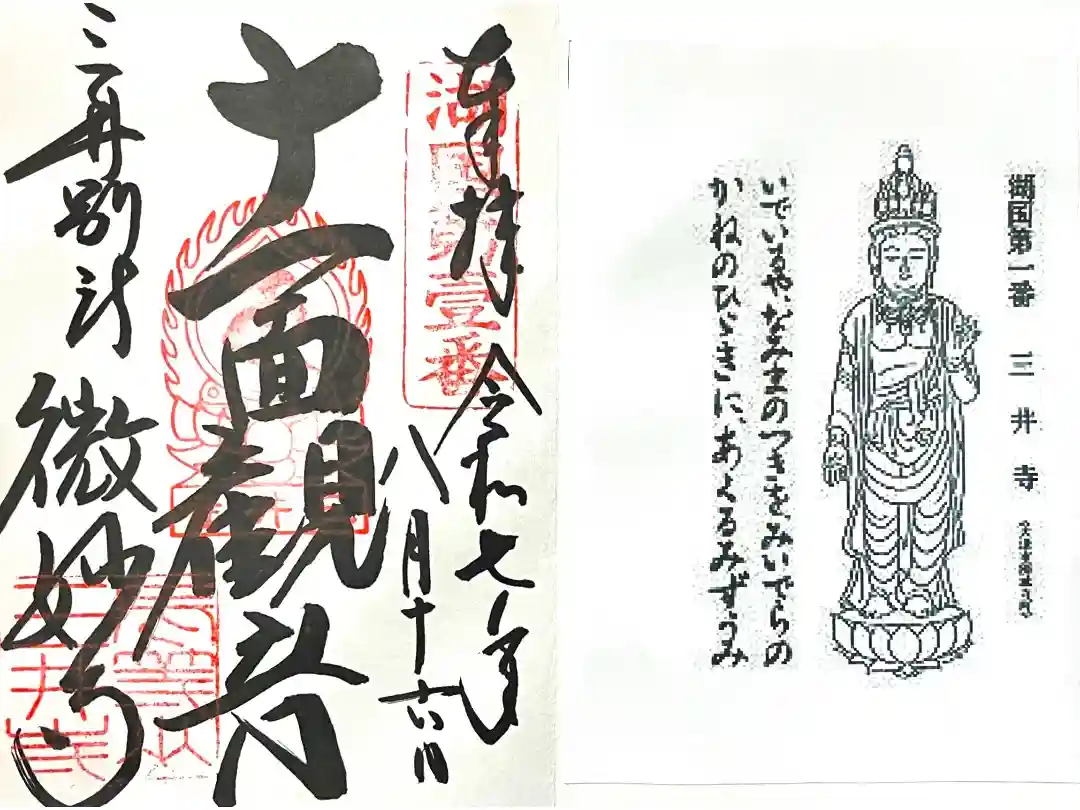 奉拝
湖国第壹番
令和七年
八月十六日
十一面観音
三井別所
微妙寺
長等山
三井寺
湖国第一番 三井寺
いでいるや、なみまのつきをみいでらの
かねのひゞきに、あくるみずうみ